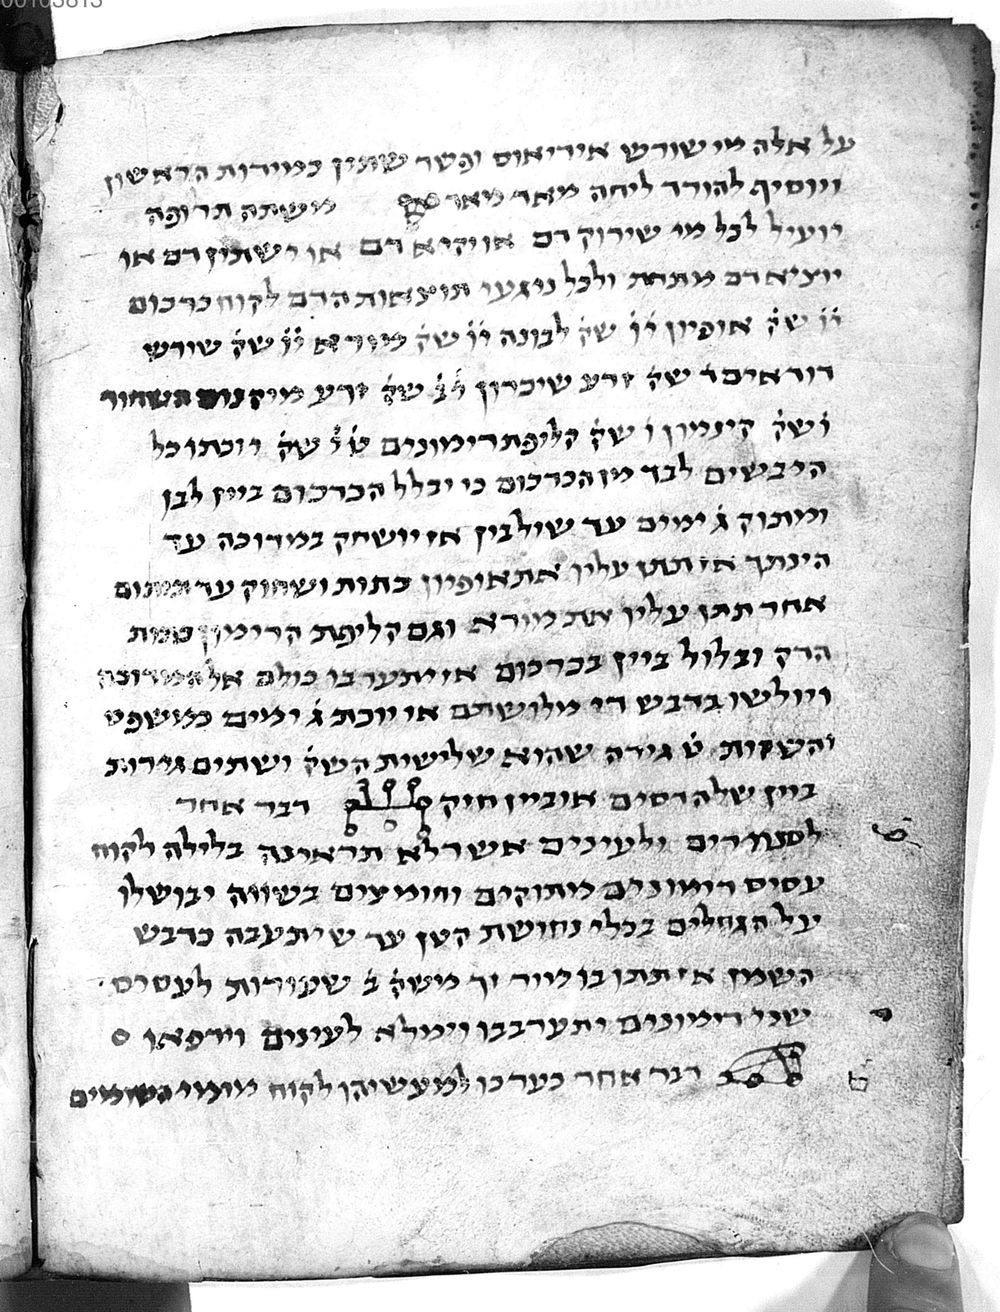 00103813
על אלה מי שורש איריאוס ופשר שתין כמידות הראשון
ויוסיף להורד ליחה מאד מאד משתה תרופה
יועיל לכל מי שירוק דם או יקיא דם או ישתין דם או
יוציא דם מתחת ולכל נוגעי תוצאות הדם לקוח כרכום
שק אופיון שק לבונה שק מורא שק שורש
דודאים שק זרע שיכרון שק זרע השחור
שק קינמון ו שק קליפת רימונים ט שק וכתו כל
היבשים לבד מן הכרכום כי יבלל הכרכום ביין לבן
ומתוק ג ימים עד שילבין אז יושחק במדוכה עד
הינתך אז תתן עליו את אופיון כתות ושחוק עד
אחר תתן עליו את מורא וגם קליפת הרימון
הדק ובלול ביין בכרכום אז יתערבו כולם אל המדוכה
ויולשו בדבש די מלושתם אז יוכת ג ימים כמשפט
והשקות ט גירה שהוא שלישית השק ושתים גירות
ביין של הדסים או ביין חזק דבר אחר
לסנורים ולעינים אשר לא תראינה בלילה לקוח
עסיס רימונים מתוקים וחומצים בשווה יבושלו
על הגחלים בכלי נחושת קטן עד שיתעבה כדבש
השמן אז תתן בו מור זך משק ב שעורות לעסיס
שני רימונים יתערבבו וימלא לעינים וירפאו
דבר אחר כערכו למעשיהן לקוח מומי השומים